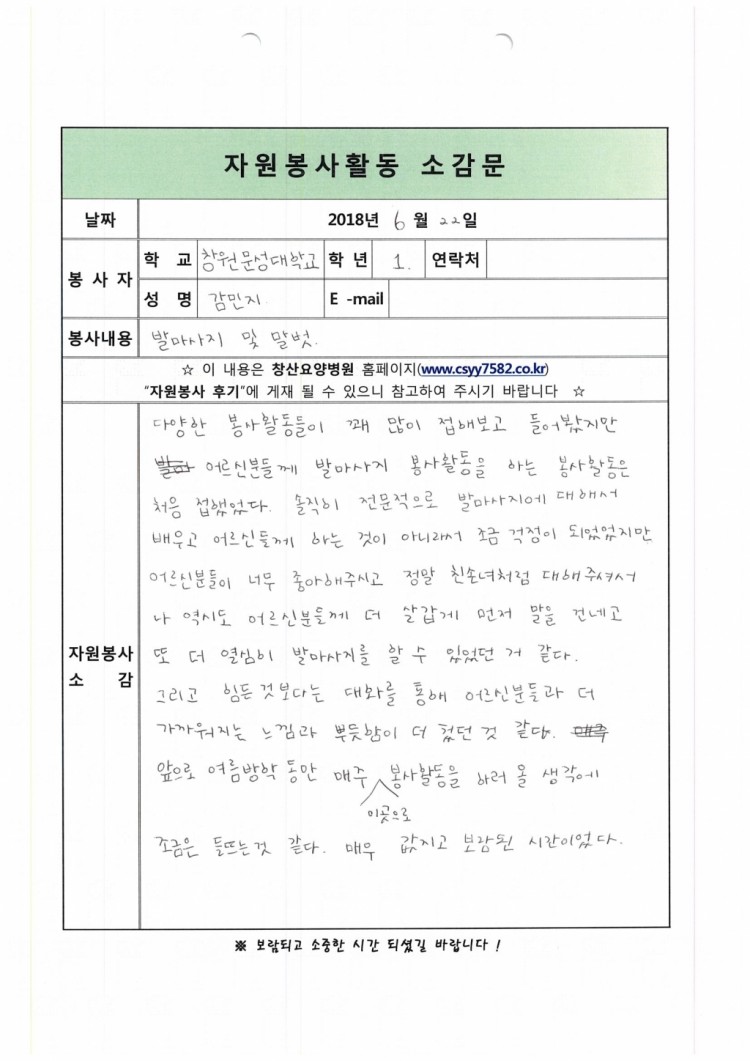 자원봉사활동 소감문
날짜 2018년 6월 22일
봉사자 학교 창원문성대학교 학년 1. 연락처
성명 감민지. E-mail
봉사내용 발마사지 및 말벗.
☆ 이 내용은 창산요양병원 홈페이지(www.csyy7582.co.kr)
“자원봉사 후기”에 게재 될 수 있으니 참고하여 주시기 바랍니다 ☆
자원봉사 소감
다양한 봉사활동들이 꽤 많이 접해보고 들어봤지만
어르신분들께 발마사지 봉사활동을 하는 봉사활동은
처음 접했었다. 솔직히 전문적으로 발마사지에 대해서
배우고 어르신들께 하는 것이 아니라서 조금 걱정이 되었었지만
어르신분들이 너무 좋아해주시고 정말 친손녀처럼 대해주셔서
나 역시도 어르신분들께 더 살갑게 먼저 말을 건네고
또 더 열심히 발마사지를 할 수 있었던 거 같다.
그리고 힘든것보다는 대화를 통해 어르신분들과 더
가까워지는 느낌과 뿌듯함이 더 컸던 것 같다.
앞으로 여름방학 동안 매주 이곳으로 봉사활동을 하러 올 생각에
조금은 들뜨는것 같다. 매우 값지고 보람된 시간이었다.
※ 보람되고 소중한 시간 되셨길 바랍니다 !